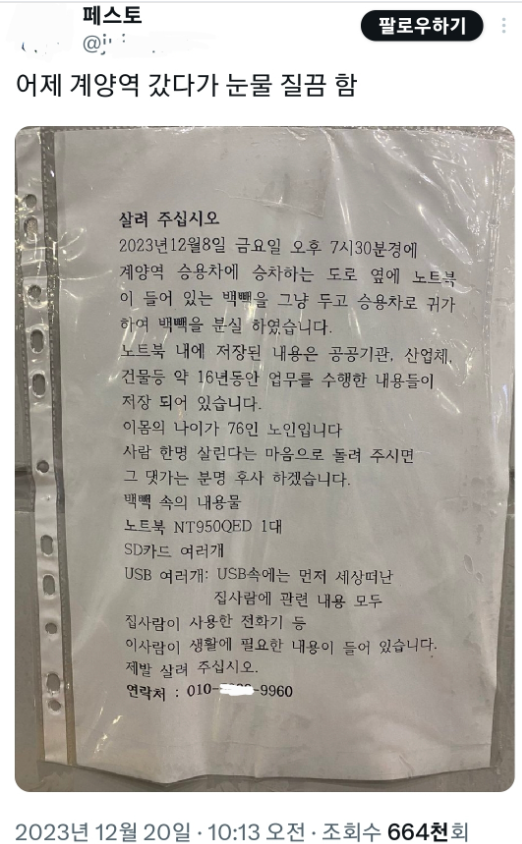 페스토
팔로우하기
어제 계양역 갔다가 눈물 질끔 함
살려 주십시오
2023년12월8일 금요일 오후 7시30분경에
계양역 승용차에 승차하는 도로 옆에 노트북
이 들어 있는 백빽을 그냥 두고 승용차로 귀가
하여 백빽을 분실 하였습니다.
노트북 내에 저장된 내용은 공공기관, 산업체,
건물등 약 16년동안 업무를 수행한 내용들이
저장 되어 있습니다.
이몸의 나이가 76인 노인입니다
사람 한명 살린다는 마음으로 돌려 주시면
그 댓가는 분명 후사 하겠습니다.
백빽 속의 내용물
노트북 NT950QED 1대
SD카드 여러개
USB 여러개: USB속에는 먼저 세상떠난
집사람에 관련 내용 모두
집사람이 사용한 전화기 등
이사람이 생활에 필요한 내용이 들어 있습니다.
제발 살려 주십시오.
연락처 : 010- -9960
2023년 12월 20일 · 10:13 오전 · 조회수 664천회